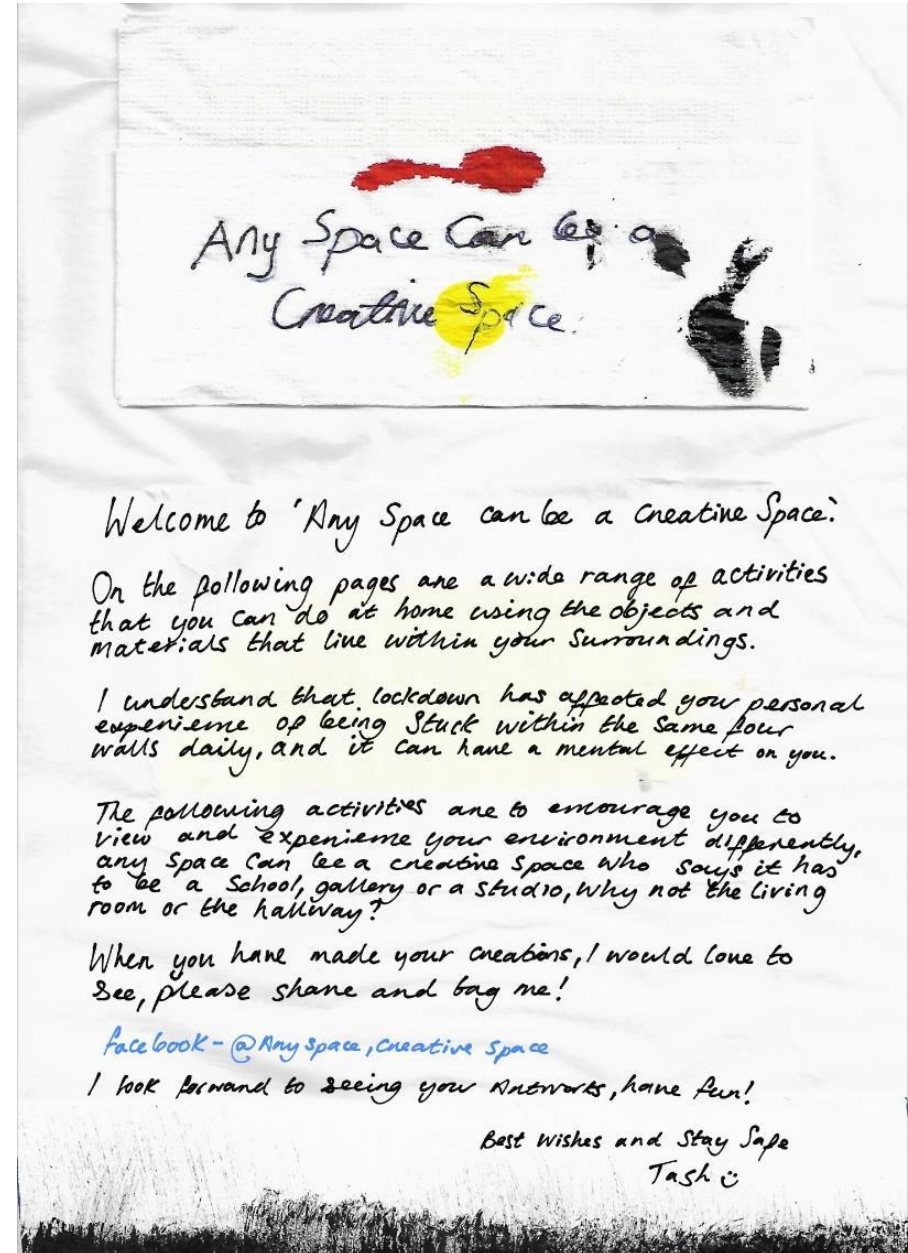 Any Space Can be a
Creative Space.
Welcome to 'Any Space can be a Creative Space'.
On the following pages are a wide range of activities
that you can do at home using the objects and
materials that live within your surroundings.
I understand that lockdown has affected your personal
experience of being stuck within the same four
walls daily, and it can have a mental effect on you.
The following activities are to encourage you to
view and experience your environment differently,
any space can be a creative space who says it has
to be a School, gallery or a studio, why not the living
room or the hallway?
When you have made your creations, I would love to
see, please share and tag me!
facebook - @Any space, creative space
I look forward to seeing your Artworks, have fun!
Best wishes and Stay Safe
Tash